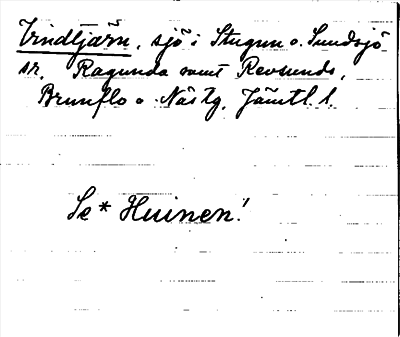 Vindtjärn, sjö i Stugun o. Sundsjö
sr, Ragunda samt Revsunds,
Brunflo o. Näs tg. Jämtl. l.
Se * Huinen!